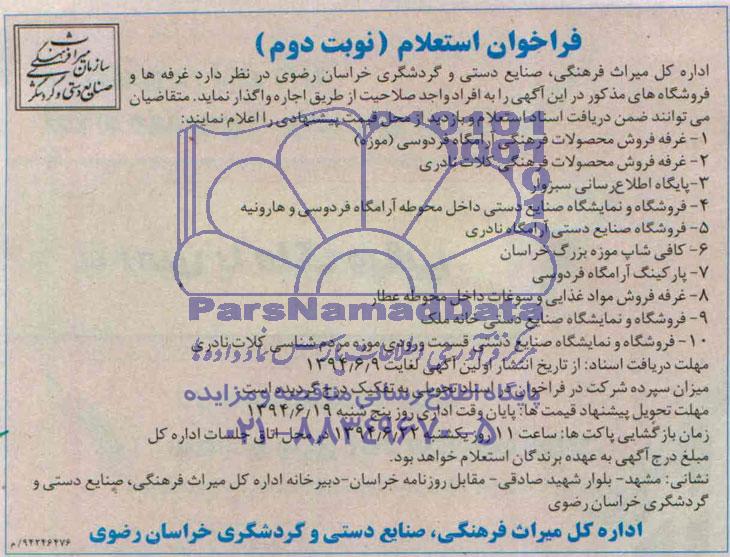 فراخوان استعلام (نوبت دوم)
سازمان میراث فرهنگی
صنایع دستی و گردشگری
اداره کل میراث فرهنگی، صنایع دستی و گردشگری خراسان رضوی در نظر دارد غرفه ها و
فروشگاه های مذکور در این آگهی را به افراد واجد صلاحیت از طریق اجاره واگذار نماید. متقاضیان
می توانند ضمن دریافت اسناد استعلام و بازدید از محل قیمت پیشنهادی را اعلام نمایند:
۱- غرفه فروش محصولات فرهنگی آرامگاه فردوسی (موزه)
۲- غرفه فروش محصولات فرهنگی کلات نادری
۳-پایگاه اطلاع رسانی سبزوار
۴- فروشگاه و نمایشگاه صنایع دستی داخل محوطه آرامگاه فردوسی و هارونیه
۵- فروشگاه صنایع دستی آرامگاه نادری
۶- کافی شاپ موزه بزرگ خراسان
۷- پارکینگ آرامگاه فردوسی
۸- غرفه فروش مواد غذایی و سوغات داخل محوطه عطار
ParsNamadData
۹- فروشگاه و نمایشگاه صنایع دستی خانه ملک
۱۰- فروشگاه و نمایشگاه صنایع دستی قسمت ورودی موزه مردم شناسی کلات نادری
مرکز فرآوری اطلاعات پارس نماد داده ها
مهلت دریافت اسناد: از تاریخ انتشار اولین آگهی لغایت ۱۳۹۴/۶/۹
میزان سپرده شرکت در فراخوان در اسناد تحویلی به تفکیک درج گردیده است.
پایگاه اطلاع رسانی مناقصه و مزایده
مهلت تحویل پیشنهاد قیمت ها: پایان وقت اداری روز پنج شنبه ۱۳۹۴/۶/۱۹
زمان بازگشایی پاکت ها: ساعت ۱۱ روز یکشنبه ۱۳۹۴/۶/۲۲ در محل اتاق جلسات اداره کل
۰۲۱-۸۸۳۴۹۶۷۰-۵
مبلغ درج آگهی به عهده برندگان استعلام خواهد بود.
نشانی: مشهد- بلوار شهید صادقی- مقابل روزنامه خراسان-دبیرخانه اداره کل میراث فرهنگی، صنایع دستی و
گردشگری خراسان رضوی
اداره کل میراث فرهنگی، صنایع دستی و گردشگری خراسان رضوی
۹۴۲۴۶۴۷۶/م